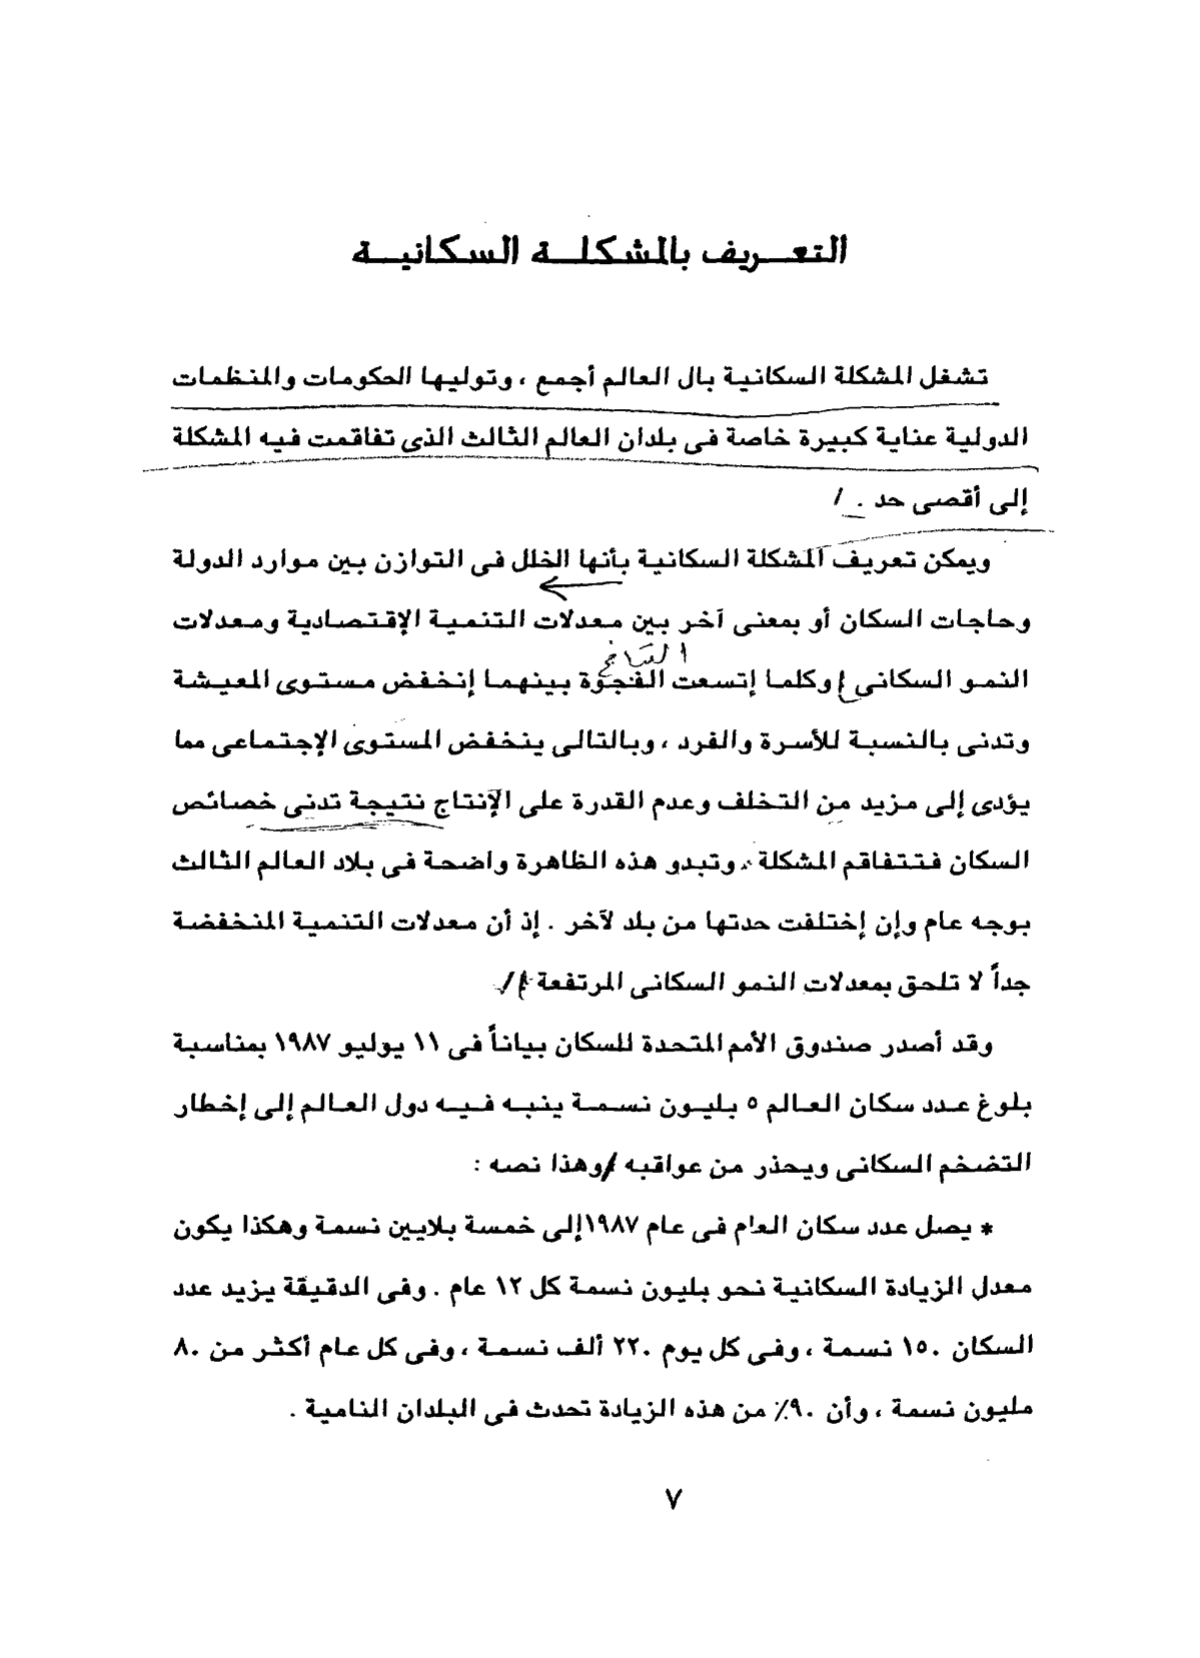 التعريف بالمشكلة السكانية
تشغل المشكلة السكانية بال العالم أجمع ، وتوليها الحكومات والمنظمات
الدولية عناية كبيرة خاصة فى بلدان العالم الثالث الذى تفاقمت فيه المشكلة
إلى أقصى حد .
ويمكن تعريف المشكلة السكانية بأنها الخلل فى التوازن بين موارد الدولة
وحاجات السكان أو بمعنى آخر بين معدلات التنمية الإقتصادية ومعدلات
النمو السكانى وكلما إتسعت الفجوة بينهما إنخفض مستوى المعيشة
وتدنى بالنسبة للأسرة والفرد ، وبالتالى ينخفض المستوى الإجتماعى مما
يؤدى إلى مزيد من التخلف وعدم القدرة على الإنتاج نتيجة تدنى خصائص
السكان فتتفاقم المشكلة . وتبدو هذه الظاهرة واضحة فى بلاد العالم الثالث
بوجه عام وإن إختلفت حدتها من بلد لآخر . إذ أن معدلات التنمية المنخفضة
جداً لا تلحق بمعدلات النمو السكانى المرتفعة
وقد أصدر صندوق الأمم المتحدة للسكان بياناً فى ١١ يوليو ١٩٨٧ بمناسبة
بلوغ عدد سكان العالم ٥ بليون نسمة ينبه فيه دول العالم إلى إخطار
التضخم السكانى ويحذر من عواقبه وهذا نصه :
* يصل عدد سكان العام فى عام ١٩٨٧إلى خمسة بلايين نسمة وهكذا يكون
معدل الزيادة السكانية نحو بليون نسمة كل ١٢ عام . وفى الدقيقة يزيد عدد
السكان ١٥٠ نسمة ، وفى كل يوم ٢٢٠ ألف نسمة ، وفى كل عام أكثر من ٨٠
مليون نسمة ، وأن ٩٠٪ من هذه الزيادة تحدث فى البلدان النامية .
٧